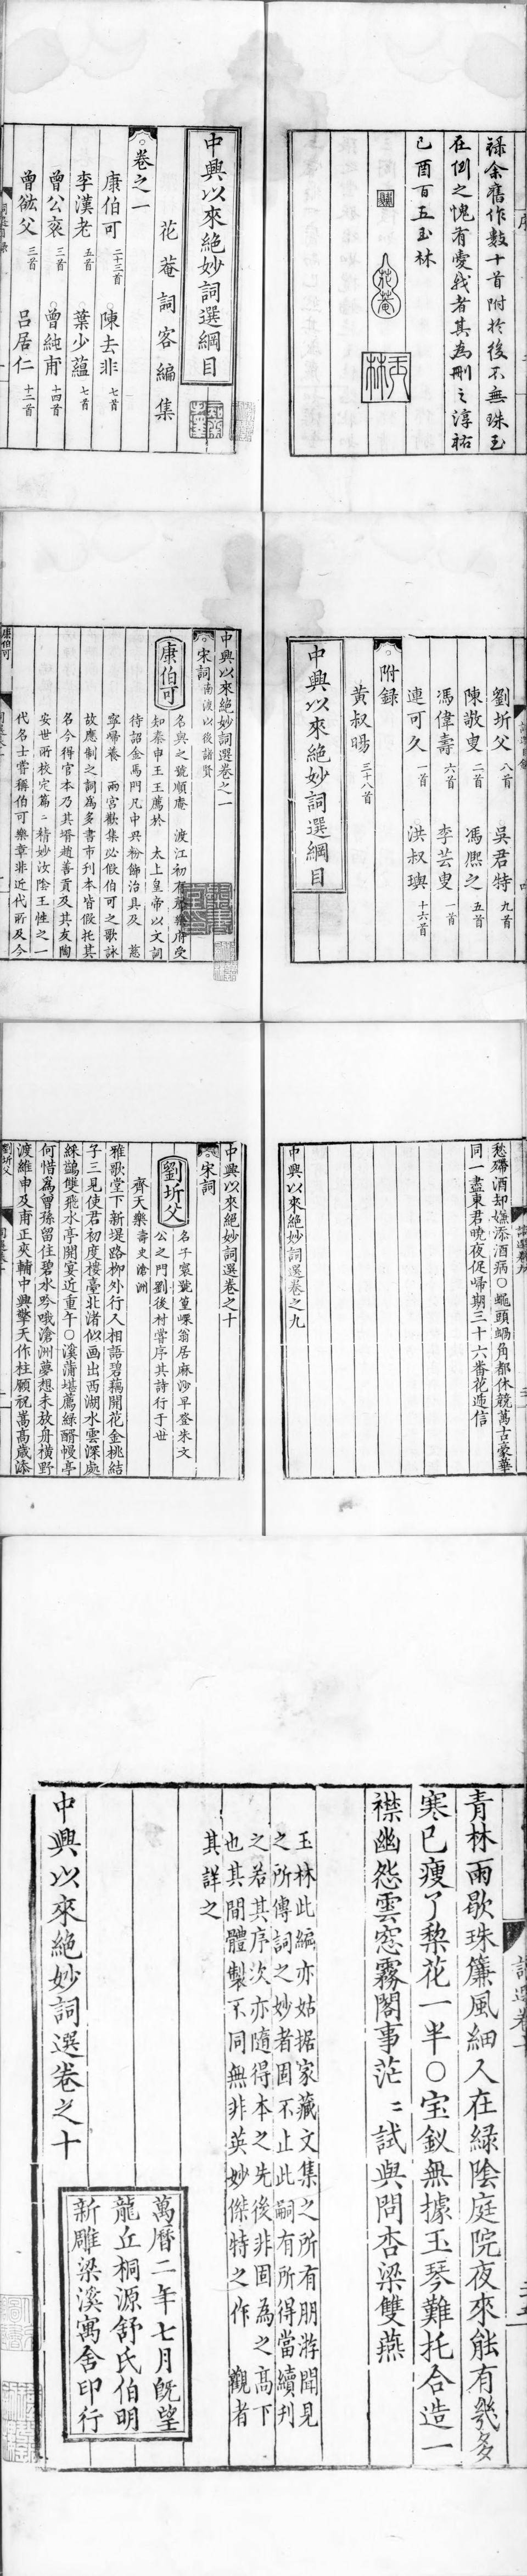 祿余舊作數十首附於後不無珠玉
在側之愧有愛我者其為刪之淳祐
己酉百五玉林
花菴
玉林
中興以來絕妙詞選綱目
花菴詞客編集
卷之一
康伯可二十三首 陳去非七首
李漢老五首 葉少蘊七首
曾公袞三首 曾純甫十四首
曾紘父三首 呂居仁十二首
劉圻父八首 吳君特九首
陳敬叟二首 馮熙之五首
馮偉壽六首 李芸叟一首
連可久一首 洪叔璵十六首
附録
黃叔暘三十八首
中興以來絕妙詞選綱目
中興以來絕妙詞選卷之一
宋詞南渡以後諸賢
康伯可
名與之號順庵 渡江初有聲樂府受
知秦申王王薦於 太上皇帝以文詞
待詔金馬門凡中興粉飾治具及 慈
寧歸養 兩宮歡集必假伯可之歌詠
故應制之詞為多書市刊本皆假托其
名今得官本乃其壻趙善貢及其友陶
安世所校定篇〻精妙汝陰王性之一
代名士嘗稱伯可樂章非近代所及今
康伯可
愁殢酒却嫌添酒病○蠅頭蝸角都休競萬古豪華
同一盡東君曉夜促歸期三十六番花遞信
中興以來絕妙詞選卷之九
中興以來絕妙詞選卷之十
宋詞
劉圻父
名子寰號篁㟮翁居麻沙早登朱文
公之門劉後村嘗序其詩行于世
齊天樂 壽史滄洲
雅歌堂下新堤路柳外行人相語碧藕開花金桃結
子三見使君初度樓臺北渚似画出西湖水雲深處
綵鷁雙飛水亭開宴近重午○溪蒲堪薦綠醑幔亭
何惜為曾孫留住碧水吟哦滄洲夢想未放舟橫野
渡維申及甫正夾輔中興擎天作柱願祝嵩高歲添
劉圻父
青林雨歇珠簾風細人在綠陰庭院夜來能有幾多
寒已瘦了棃花一半○宝釵無據玉琴難托合造一
襟幽怨雲窓霧閣事茫〻試與問杏梁雙燕
玉林此編亦姑据家藏文集之所有朋游聞見
之所傳詞之妙者固不止此嗣有所得當續刋
之若其序次亦隨得本之先後非固為之高下
也其間體製不同無非英妙傑特之作 觀者
其詳之
中興以來絕妙詞選卷之十
萬曆二年七月旣望
龍丘桐源舒氏伯明
新雕梁溪寓舍印行